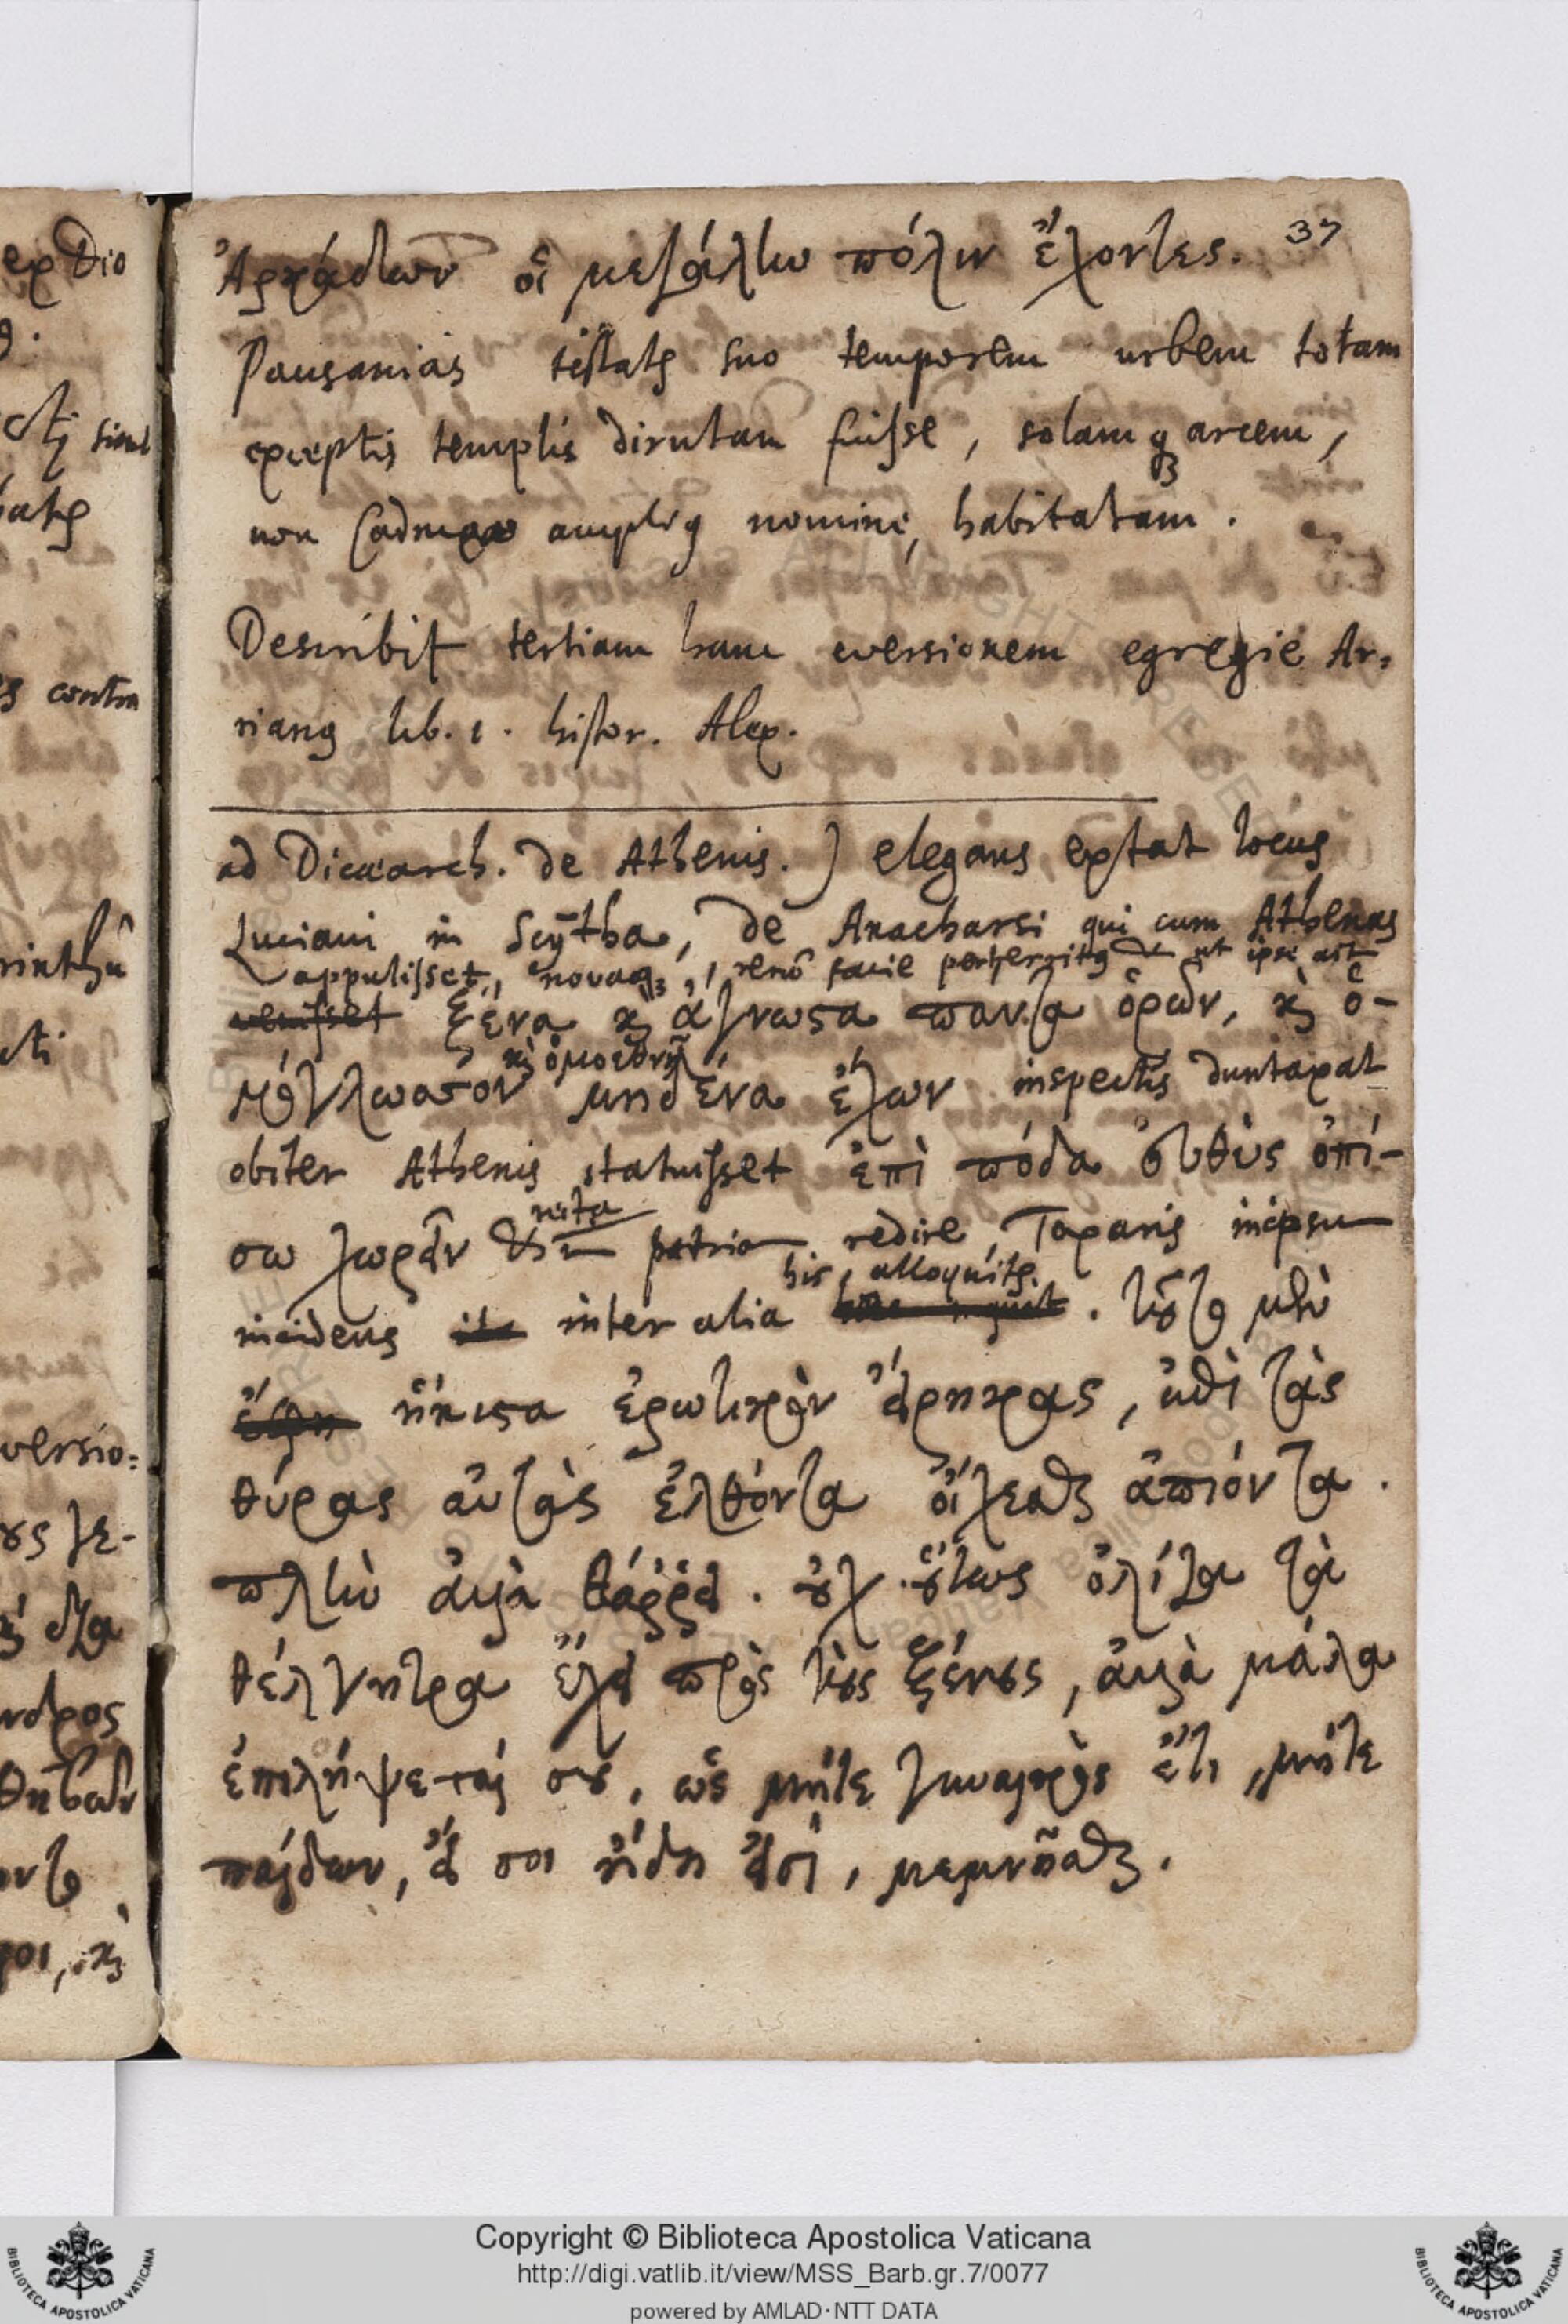 37
Ἀρκάδων οἱ μεγάλην πόλιν ἔχοντες.
Pausanias testatur suo temporem urbem totam
exceptis templis dirutam fuisse, solamq; arcem,
non Cadmeae amplius nomine, habitatam.
Describit tertiam hanc eversionem egregie Ar-
rianus lib. 1. histor. Alex.
ad Dicaearch. de Athenis.) elegans extat locus
Luciani in Scytha, de Anacharsi qui cum Athenas
appulisset, novaq;, facie ut ipse ait
venisset ξένα καὶ ἄγνωστα πάντα ὁρῶν, καὶ ὁ-
καὶ ὁμοεθνῆ
μόγλωσσον μηδένα ἔχων inspectis duntaxat
obiter Athenis statuisset ἐπὶ πόδα εὐθὺς ὀπί-
σω χωρεῖν patriam redire, Toxaris in ipsum
his, alloquitur.
incidens ita inter alia . τοῦτο μὲν
ἔφη ἥκιστα ἐρωτικὸν εἴρηκας, ἐπὶ τὰς
θύρας αὐτὰς ἐλθόντα οἴχεσθαι ἀπιόντα.
πλὴν ἀλλὰ θάρρει. οὐχ οὕτως ὀλίγα τὰ
θέλγητρα ἔχει πρὸς τοὺς ξένους, ἀλλὰ μάλα
ἐπιλήψεταί σου, ὡς μήτε γυναικὸς ἔτι, μήτε
παίδων, εἴ σοι ἤδη εἰσί, μεμνῆσθαι.
ex Dio
contra
versio-
Copyright © Biblioteca Apostolica Vaticana
http://digi.vatlib.it/view/MSS_Barb.gr.7/0077
powered by AMLAD·NTT DATA
BIBLIOTECA APOSTOLICA VATICANA
BIBLIOTECA APOSTOLICA VATICANA